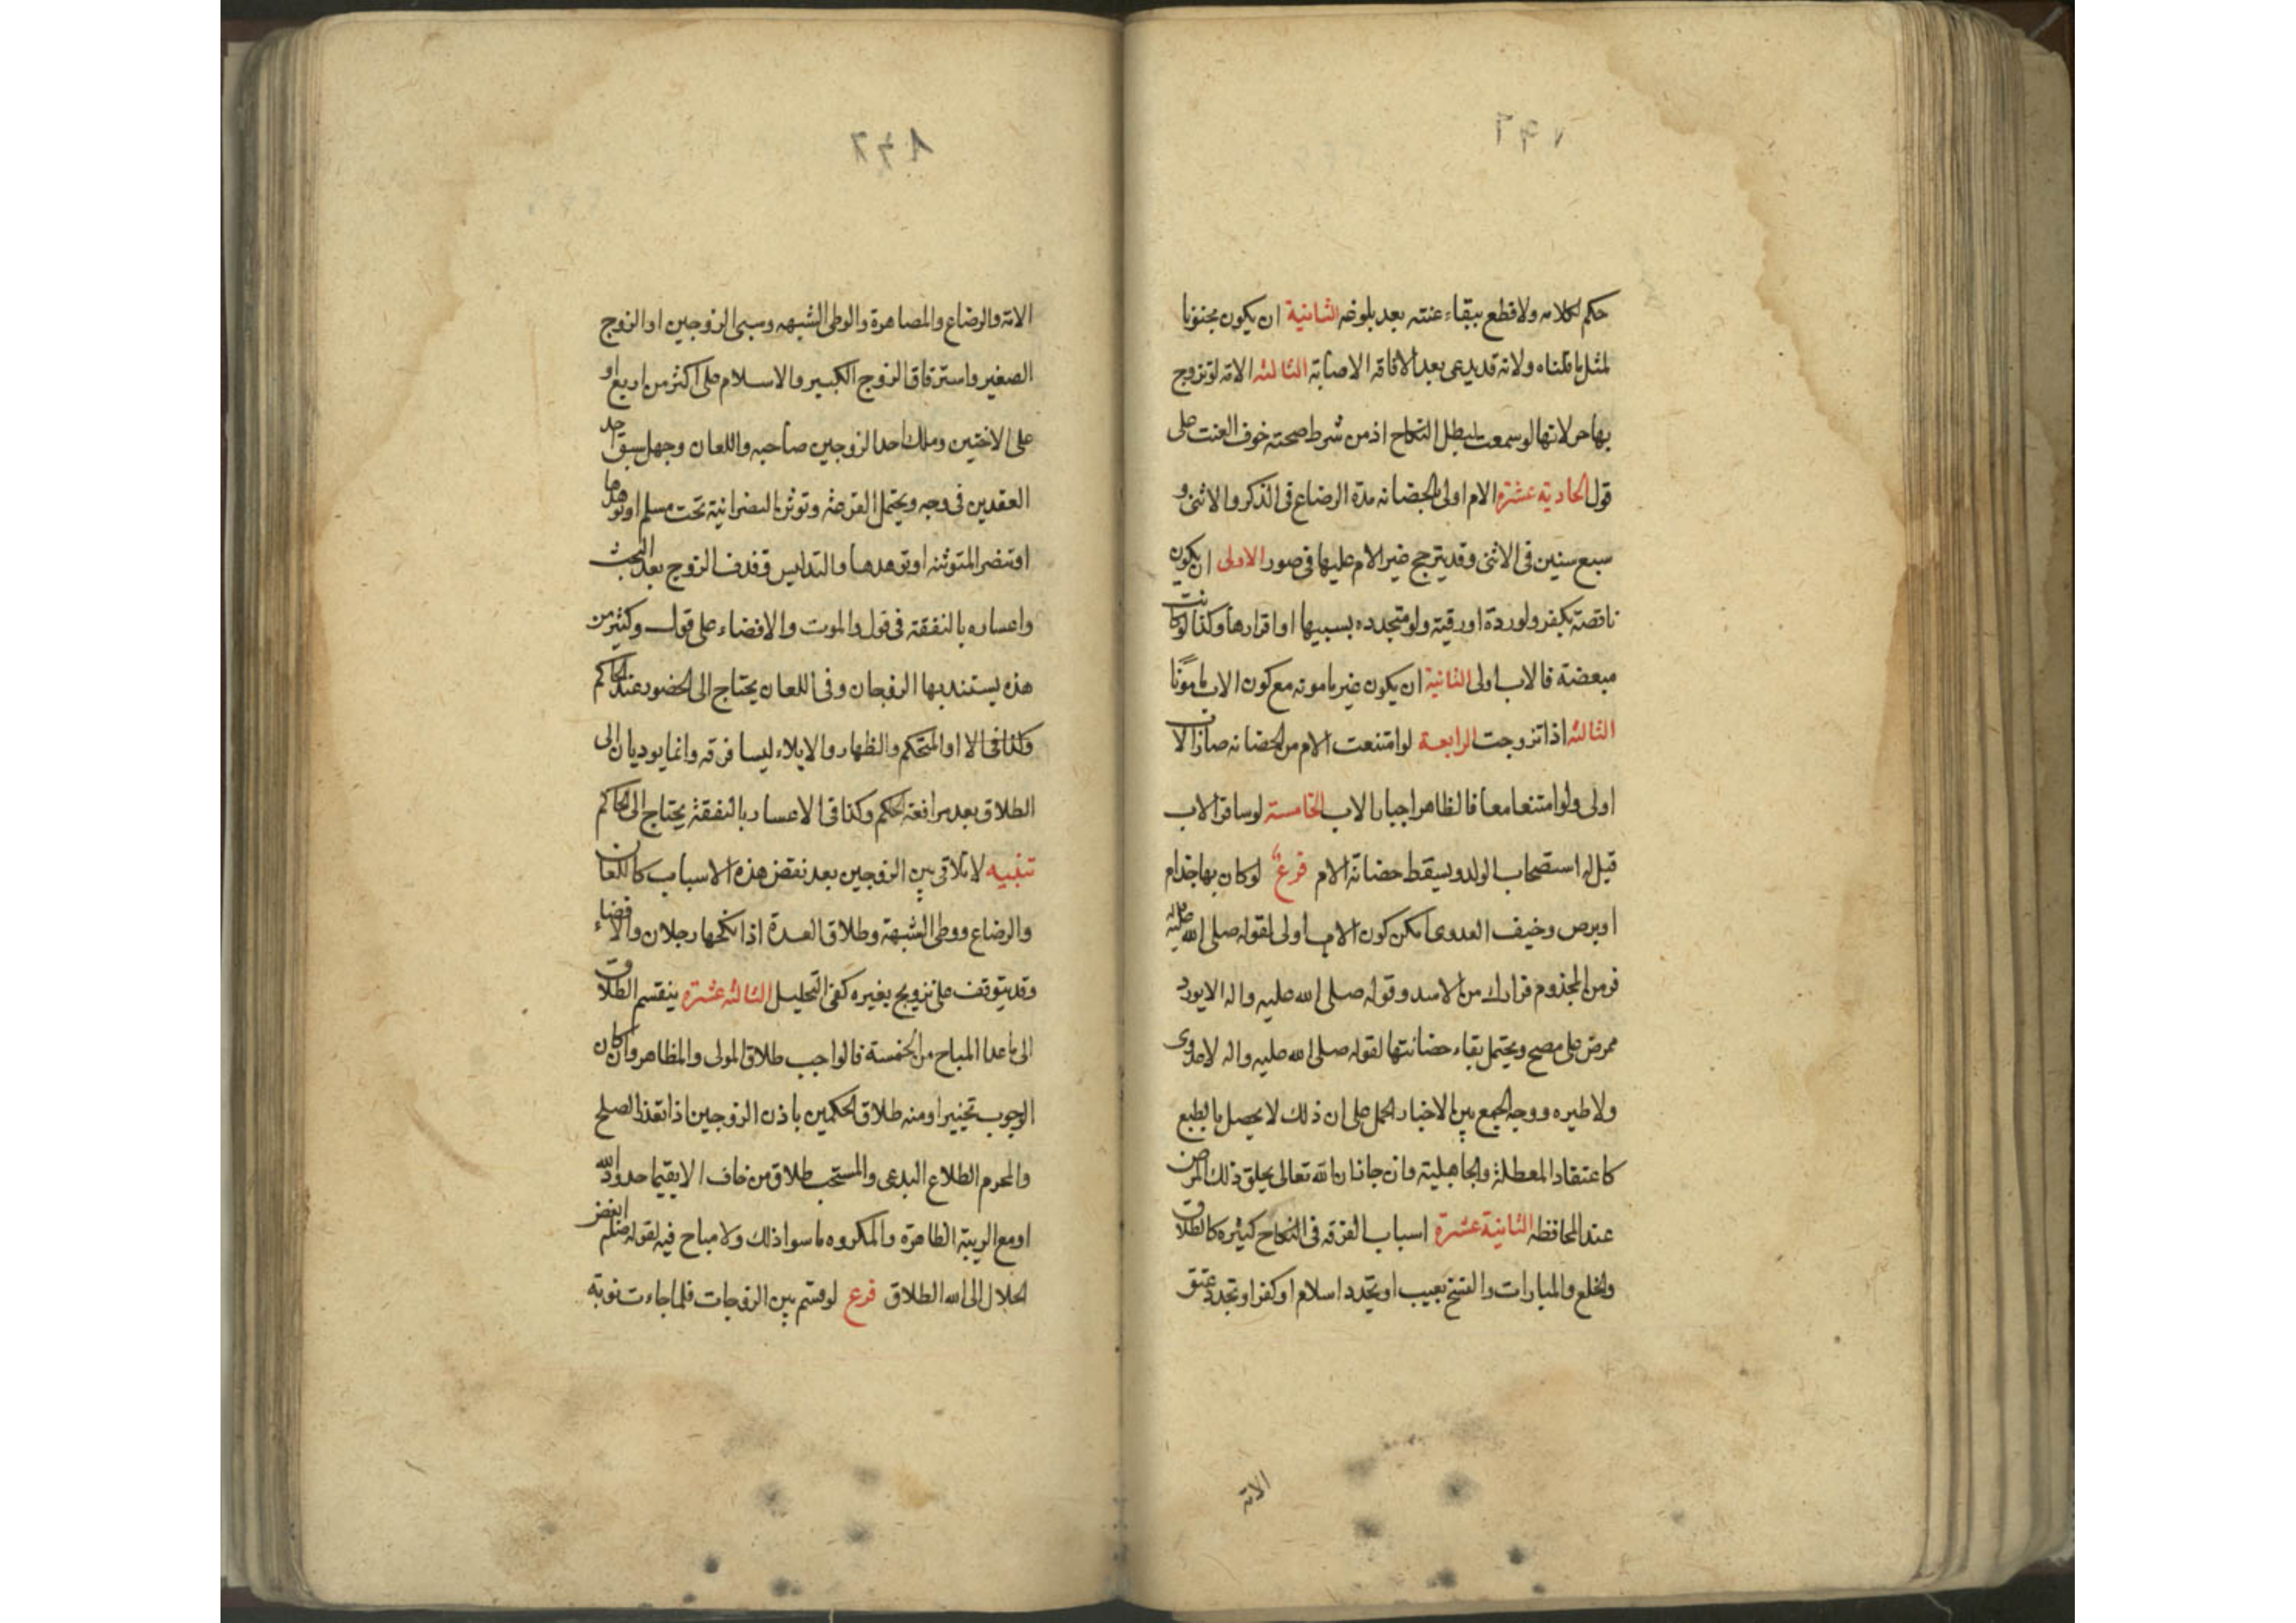 حكم لكلامه ولا قطع ببقاء عنته بعد بلوغه الثانية ان يكون مجنونا
لمثل ما قلناه ولانه قد يدعى بعد الافاقه الاصابة الثالثه الامة لو تزوج
بها حر لانها لو سمعت لبطل النكاح اذ من شرط صحته خوف العنت على
قول الحادية عشرة الام اولى بالحضانه مدة الرضاع فى الذكر والانثى و
سبع سنين فى الانثى وقد يترجح غير الام عليها فى صور الاولى ان يكون
ناقصة بكفر ولو ردة او رقية ولو متجدده بسببها او اقرارها وكذا لو كانت
مبعضة فالاب اولى الثانية ان يكون غير مامونه مع كون الاب مامونًا
الثالثه اذا تزوجت الرابعة لو امتنعت الام من الحضانه صار الاب
اولى ولو امتنعا معا فالظاهر اجبار الاب الخامسة لو سافر الاب
قيل له استصحاب الولد ويسقط حضانة الام فرع لو كان بها جذام
او برص وخيف العدوى امكن كون الاب اولى لقوله صلى الله عليه واله
فر من المجذوم فرارك من الاسد وقوله صلى الله عليه واله الا يورد
ممرض على مصح ويحتمل بقاء حضانتها لقوله صلى الله عليه واله لا عدوى
ولا طيره ووجه الجمع بين الاخبار الحمل على ان ذلك لا يحصل بالطبع
كاعتقاد المعطلة والجاهلية وان جاز ان الله تعالى يخلق ذلك المرض
عند المخالطه الثانية عشرة اسباب الفرقه فى النكاح كثيره كالطلاق
والخلع والمبارات والفسخ بعيب او تجدد اسلام او كفر او تجدد عتق
الامة
الامة والرضاع والمصاهرة والوطى الشبهه وسبى الزوجين او الزوج
الصغير واسترقاق الزوج الكبير والاسلام على اكثر من اربع او
على الاختين وملك احد الزوجين صاحبه واللعان وجهل سبق احد
العقدين فى وجه ويحتمل القرعة وتوثن النصرانية تحت مسلم او تهودها
او تنصر المتوثنه او تهودها والتدليس وقذف الزوج بعد البحث
واعساره بالنفقة فى قول والموت والافضاء على قول وكثير من
هذه يستند بها الزوجان وفى اللعان يحتاج الى الحضور عند الحاكم
والظهار والايلاء ليسا فرقه وانما يوديان الى
الطلاق بعد مرافعة الحكم وكذا فى الاعسار بالنفقة يحتاج الى الحاكم
تنبيه لا تلاقى بين الزوجين بعد نقض هذه الاسباب كاللعان
والرضاع ووطى الشبهة وطلاق العدة اذا نكحها رجلان والافضاء
وقد يتوقف على تزويج بغيره كفى التحليل الثالثه عشرة ينقسم الطلاق
الى ما عدا المباح من الخمسة فالواجب طلاق المولى والمظاهر وان كان
الوجوب تخيير او منه طلاق الحكمين باذن الزوجين اذا تعذر الصلح
والمحرم الطلاع البدعى والمستحب طلاق من خاف الا يقيما حدود الله
او مع الريبة الظاهرة والمكروه ما سوا ذلك ولا مباح فيه لقوله صلعم ابغض
الحلال الى الله الطلاق فرع لو قسم بين الزوجات فلما جاءت نوبة